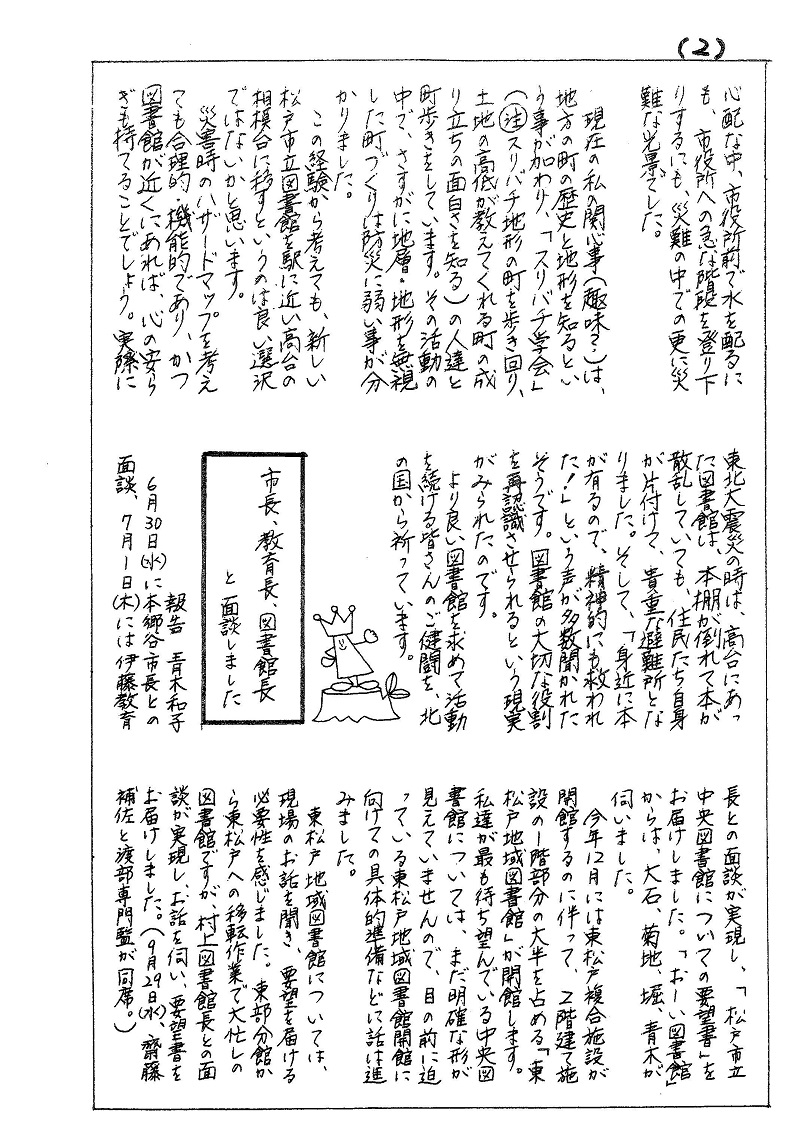 (2)
心配な中、市役所前で水を配るに
も、市役所への急な階段を登り下
りするにも、災難の中での更に災
難な光景でした。
現在の私の関心事(趣味?)は、
地方の町の歴史と地形を知るとい
う事が加わり、「スリバチ学会」
(注スリバチ地形の町を歩き回り、
土地の高低が教えてくれる町の成
り立ちの面白さを知る)の人達と
町歩きをしています。その活動の
中で、さすがに地層・地形を無視
した町づくりは防災に弱い事が分
かりました。
この経験から考えても、新しい
松戸市立図書館を駅に近い高台の
相模台に移すというのは良い選択
ではないかと思います。
災害時のハザードマップを考え
ても合理的・機能的であり、かつ
図書館が近くにあれば、心の安ら
ぎも持てることでしょう。実際に
東北大震災の時は、高台にあっ
た図書館は、本棚が倒れて本が
散乱していても、住民たち自身
が片付けて、貴重な避難所とな
りました。そして、「身近に本
が有るので、精神的にも救われ
た!」という声が多数聞かれた
そうです。図書館の大切な役割
を再認識させられるという現実
がみられたのです。
より良い図書館を求めて活動
を続ける皆さんのご健闘を、北
の国から祈っています。
市長、教育長、図書館長
と面談しました
報告 青木和子
6月30日(水)に本郷谷市長との
面談、7月1日(木)には伊藤教育
長との面談が実現し、「松戸市立
中央図書館についての要望書」を
お届けしました。「おーい図書館」
からは、大石、菊地、堀、青木が
伺いました。
今年12月には東松戸複合施設が
開館するのに伴って、2階建て施
設の1階部分の大半を占める「東
松戸地域図書館」が開館します。
私達が最も待ち望んでいる中央図
書館については、まだ明確な形が
見えていませんので、目の前に迫
っている東松戸地域図書館開館に
向けての具体的準備などに話は進
みました。
東松戸地域図書館については、
現場のお話を聞き、要望を届ける
必要性を感じました。東部分館か
ら東松戸への移転作業で大忙しの
図書館ですが、村上図書館長との面
談が実現し、お話を伺い、要望書を
お届けしました。(9月29日(水)、齋藤
補佐と渡部専門監が同席。)